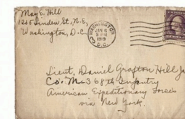 May E. Hill
1240 Linden St. N.E.
Washington, D.C.
WASHINGTON
1918
D.C.
Lieut. Daniel Grafton Hill Jr.
Co. M. 368th Infantry
American Expeditionary Forces
via New York.